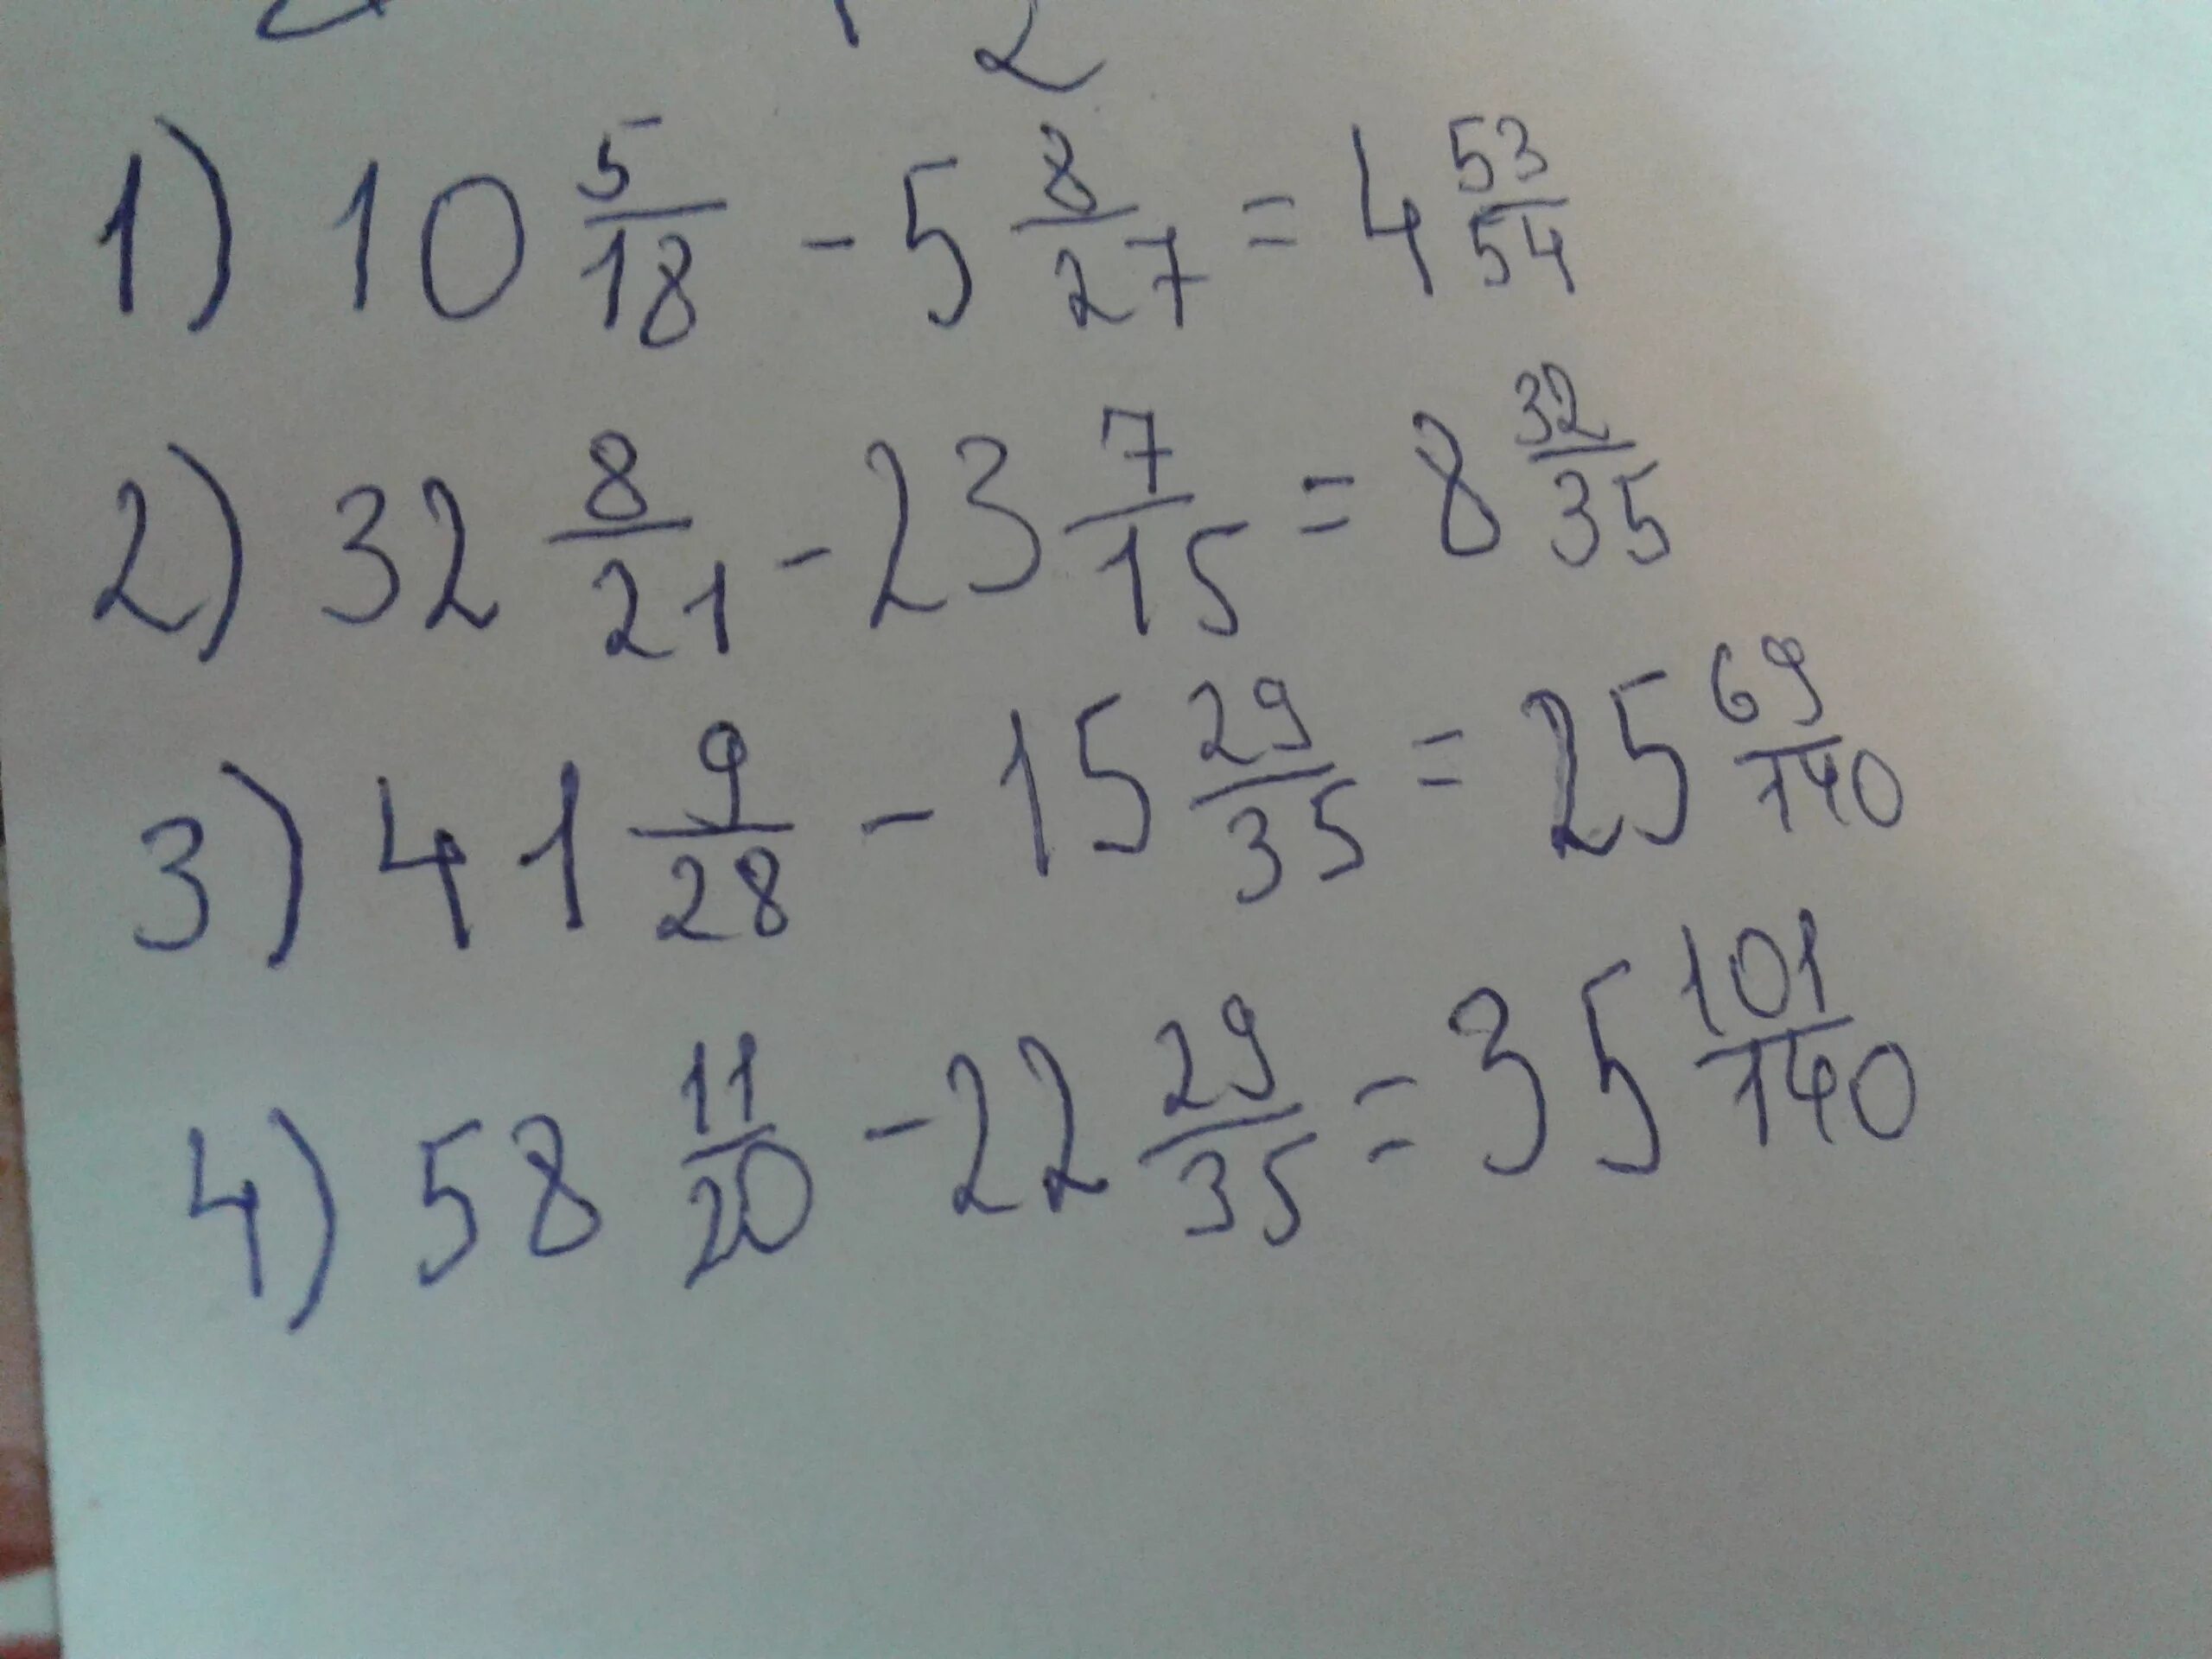 2
1) 10 5/18 - 5 8/27 = 4 53/54
2) 32 8/21 - 23 7/15 = 8 32/35
3) 41 9/28 - 15 29/35 = 25 69/140
4) 58 11/20 - 22 29/35 = 35 101/140